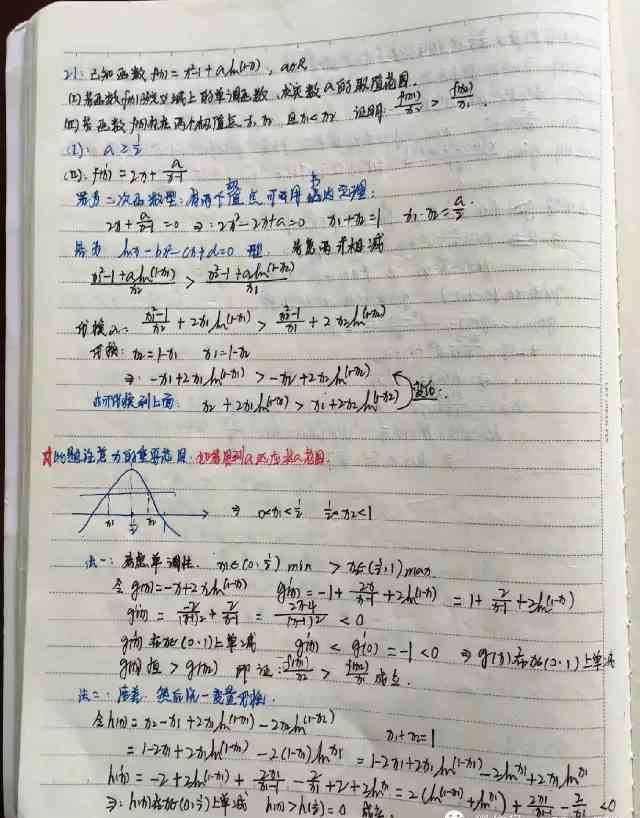 21: 已知函数 f(x) = x²-1+aln(1-x), a∈R
(I) 若函数f(x)为定义域上的单调函数, 求实数a的取值范围.
(II) 若函数f(x)存在两个极值点x₁, x₂ 且x₁<x₂ 证明: f(x₁)/x₂ > f(x₂)/x₁.
(I): a ≥ 1/2
(II). f'(x) = 2x + a/(x-1)
若为二次函数型: 有两个极值点 可用韦达定理:
2x + a/(x-1) = 0 ⇒: 2x²-2x+a=0 x₁+x₂=1 x₁·x₂=a/2.
若为 lnx-bx²-cx+d=0 型.
(x₁²-1+aln(1-x₁))/x₂ > (x₂²-1+aln(1-x₂))/x₁
代换a: (x₁²-1)/x₂ + 2x₁ln(1-x₁) > (x₂²-1)/x₁ + 2x₂ln(1-x₂)
代换: x₂=1-x₁ x₁=1-x₂
⇒: -x₁+2x₁ln(1-x₁) > -x₂+2x₂ln(1-x₂)
亦可代换到上面: x₂+2x₁ln(1-x₁) > x₁+2x₂ln(1-x₂)
此题注意 的重要范围.
x₁ 1/2 x₂
⇒ 0<x₁<1/2 1/2<x₂<1
法一: 考虑单调性. x₁∈(0,1/2) min > x₂∈(1/2,1) max
令 g(x)=-x+2xln(1-x) g'(x)=-1+2x/(x-1)+2ln(1-x) = 1+2/(x-1)+2ln(1-x)
g''(x) = -2/(x-1)²+2/(x-1) = (2x-4)/(x-1)² < 0
g'(x)在x∈(0,1)上单减 g'(x) < g'(0) = -1 < 0 ⇒ g(x)在x∈(0,1)上单减
g(x₁)恒 > g(x₂) 即证: f(x₁)/x₂ > f(x₂)/x₁ 成立.
法二: 作差. 然后统一变量
令h(x)= x₂-x₁+2x₁ln(1-x₁)-2x₂ln(1-x₂) x₁+x₂=1
= 1-2x₁+2x₁ln(1-x₁)-2(1-x₁)lnx₁ = 1-2x₁+2x₁ln(1-x₁)-2lnx₁+2x₁lnx₁
h'(x)= -2+2ln(1-x₁)+2x₁/(x₁-1)-2/x₁+2+2lnx₁ = 2(ln(1-x₁)+lnx₁)+2x₁/(x₁-1)-2/x₁<0
⇒: h(x)在x∈(0,1/2)上单减 h(x)>h(1/2)=0 成立.